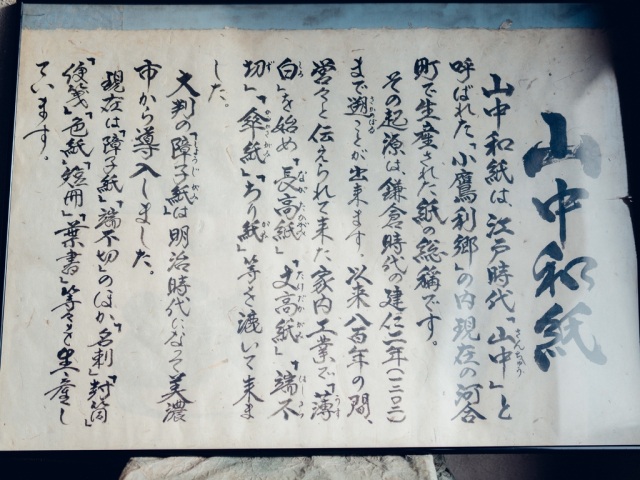 山中和紙
山中和紙は、江戸時代「山中」と
呼ばれた「小鷹利郷」の内現在の河合
町で生産された紙の総稱です。
その起源は、鎌倉時代の建仁二年(一二〇二)
まで遡ることが出来ます。以来八百年の間、
営々と伝えられて来た家内工業で「薄
白」を始め「長高紙」「丈高紙」「端不
切」「傘紙」「ちり紙」等を漉いて来ま
した。
大判の「障子紙」は明治時代になって美濃
市から導入しました。
現在は「障子紙」「端不切」のほか「名刺」「封筒」
「便箋」「色紙」「短冊」「葉書」等々を生産し
ています。